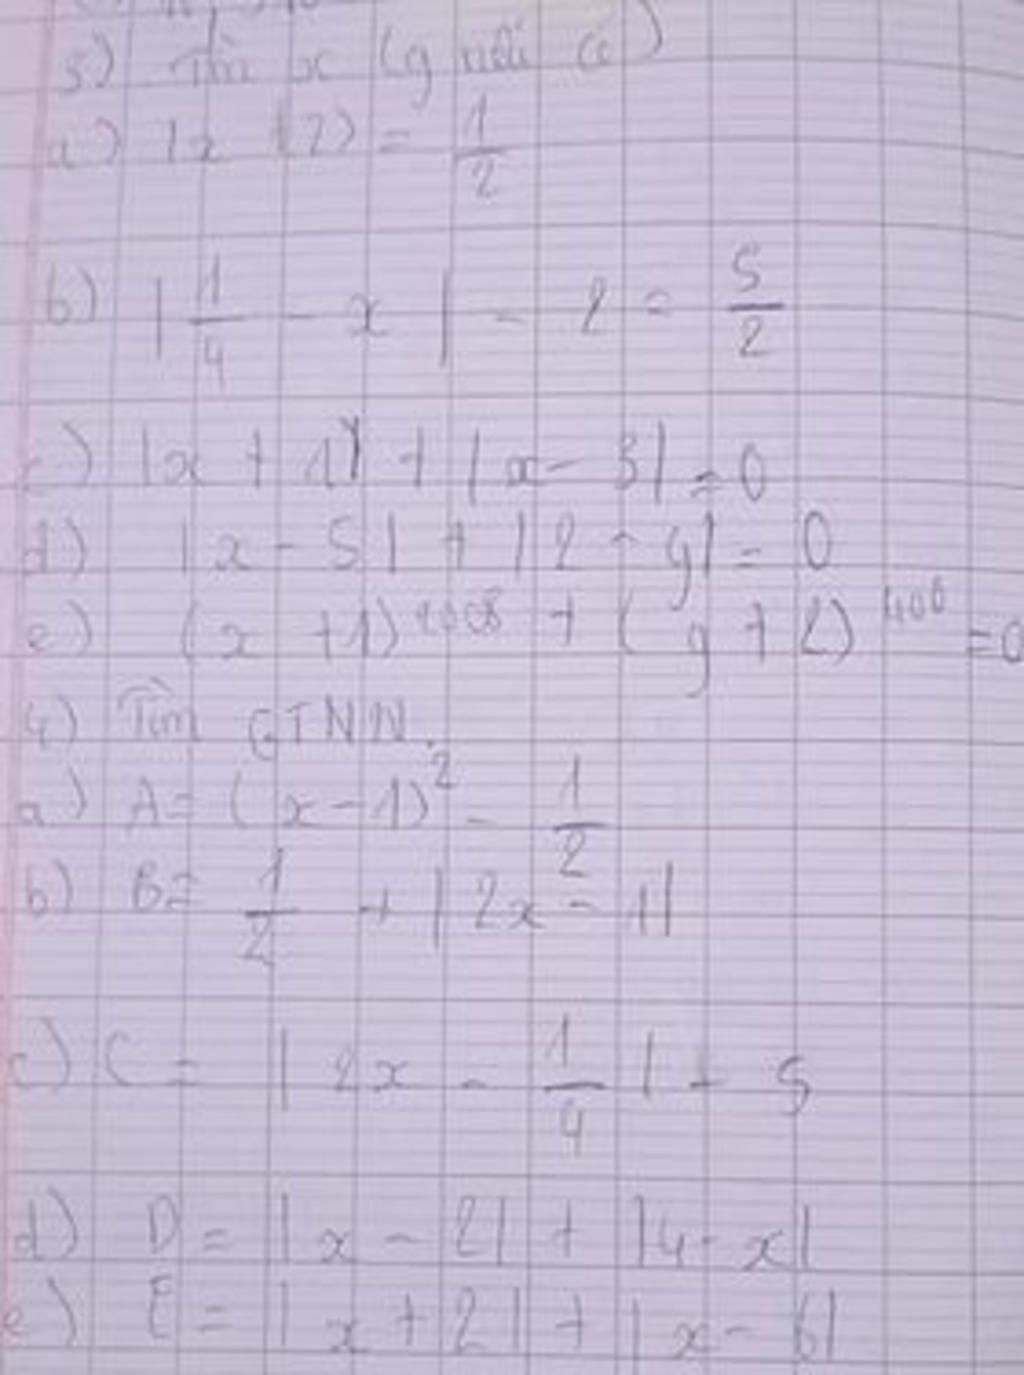 3) Tìm x (y nếu có)
a) |x + 2| = 1/2
b) |1/4 - x| - 2 = 5/2
c) |x + 1| + |x - 3| = 0
d) |x - 5| + |2 - y| = 0
e) (x + 1)^2008 + (y + 2)^400 = 0
4) Tìm GTNN.
a) A = (x - 1)^2 - 1/2
b) B = 1/2 + |2x - 1|
c) C = |2x - 1/4| + 5
d) D = |x - 2| + |4 - x|
e) E = |x + 2| + |x - 6|